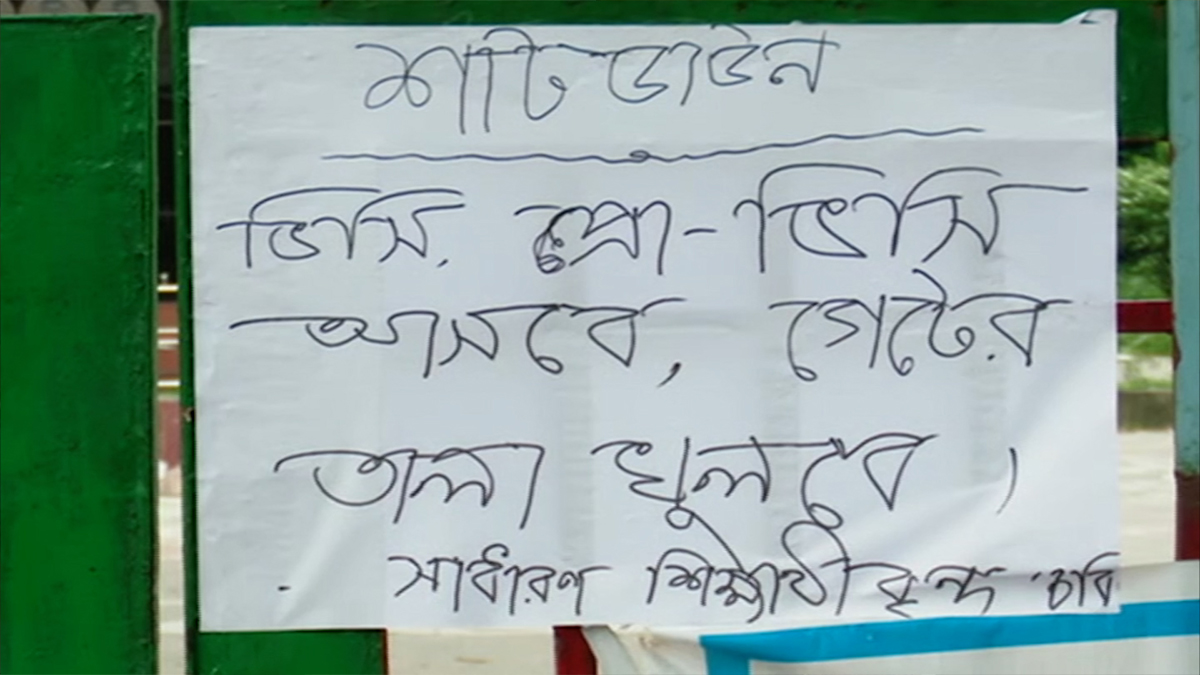 শাটডাউন
ভিসি, প্রো-ভিসি
আসবে, গেটের
তালা খুলবে।
সাধারণ শিক্ষার্থী বৃন্দ